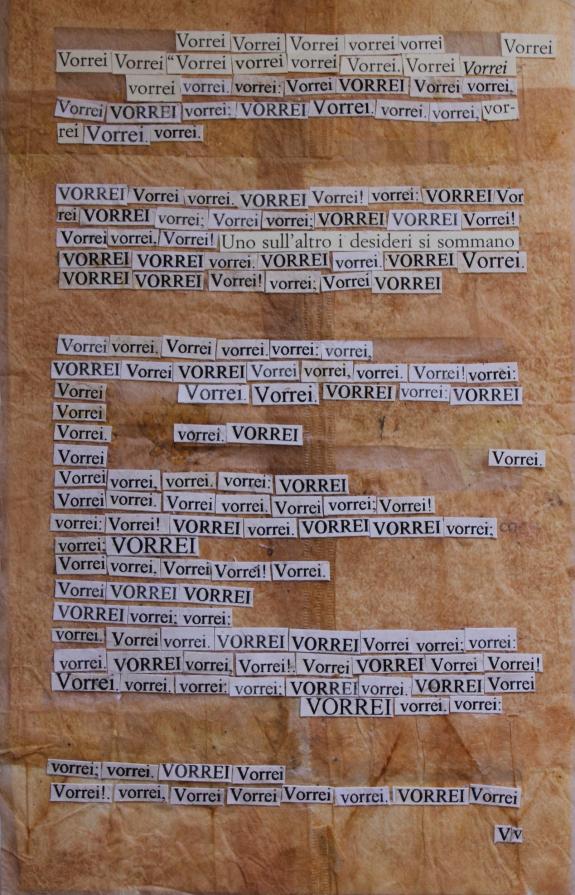 Vorrei Vorrei Vorrei vorrei vorrei Vorrei
Vorrei Vorrei “Vorrei vorrei vorrei Vorrei. Vorrei Vorrei
vorrei vorrei. vorrei: Vorrei VORREI Vorrei vorrei,
Vorrei VORREI vorrei; VORREI Vorrei. vorrei. vorrei, vor-
rei Vorrei. vorrei.
VORREI Vorrei vorrei. VORREI Vorrei! vorrei: VORREI Vor
rei VORREI vorrei; Vorrei vorrei; VORREI VORREI Vorrei!
Vorrei vorrei, Vorrei! Uno sull'altro i desideri si sommano
VORREI VORREI vorrei. VORREI vorrei. VORREI Vorrei.
VORREI VORREI Vorrei! vorrei; Vorrei VORREI
Vorrei vorrei. Vorrei vorrei. vorrei: vorrei,
VORREI Vorrei VORREI Vorrei vorrei, vorrei. Vorrei! vorrei:
Vorrei Vorrei. Vorrei. VORREI vorrei: VORREI
Vorrei
Vorrei. vorrei. VORREI
Vorrei Vorrei.
Vorrei vorrei, vorrei. vorrei: VORREI
Vorrei vorrei. Vorrei vorrei. Vorrei vorrei; Vorrei!
vorrei: Vorrei! VORREI vorrei. VORREI VORREI vorrei;
vorrei; VORREI
Vorrei vorrei, Vorrei Vorrei! Vorrei.
Vorrei VORREI VORREI
VORREI vorrei; vorrei:
vorrei. Vorrei vorrei. VORREI VORREI Vorrei vorrei; vorrei:
vorrei. VORREI vorrei, Vorrei! Vorrei VORREI Vorrei Vorrei!
Vorrei. vorrei. vorrei: vorrei; VORREI vorrei. VORREI Vorrei
VORREI vorrei. vorrei:
vorrei; vorrei. VORREI Vorrei
Vorrei!. vorrei, Vorrei Vorrei Vorrei vorrei. VORREI Vorrei
Vv